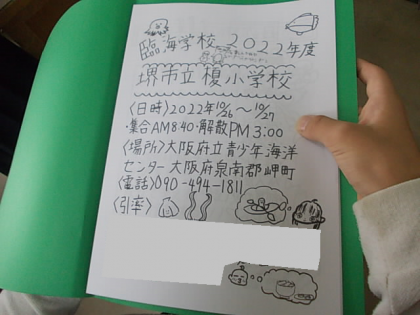 臨海学校 2022年度
堺市立榎小学校
〈日時〉2022年10/26〜10/27
・集合AM8:40・解散PM3:00
〈場所〉大阪府立青少年海洋
センター大阪府泉南郡岬町
〈電話〉090-494-1811
〈引率〉